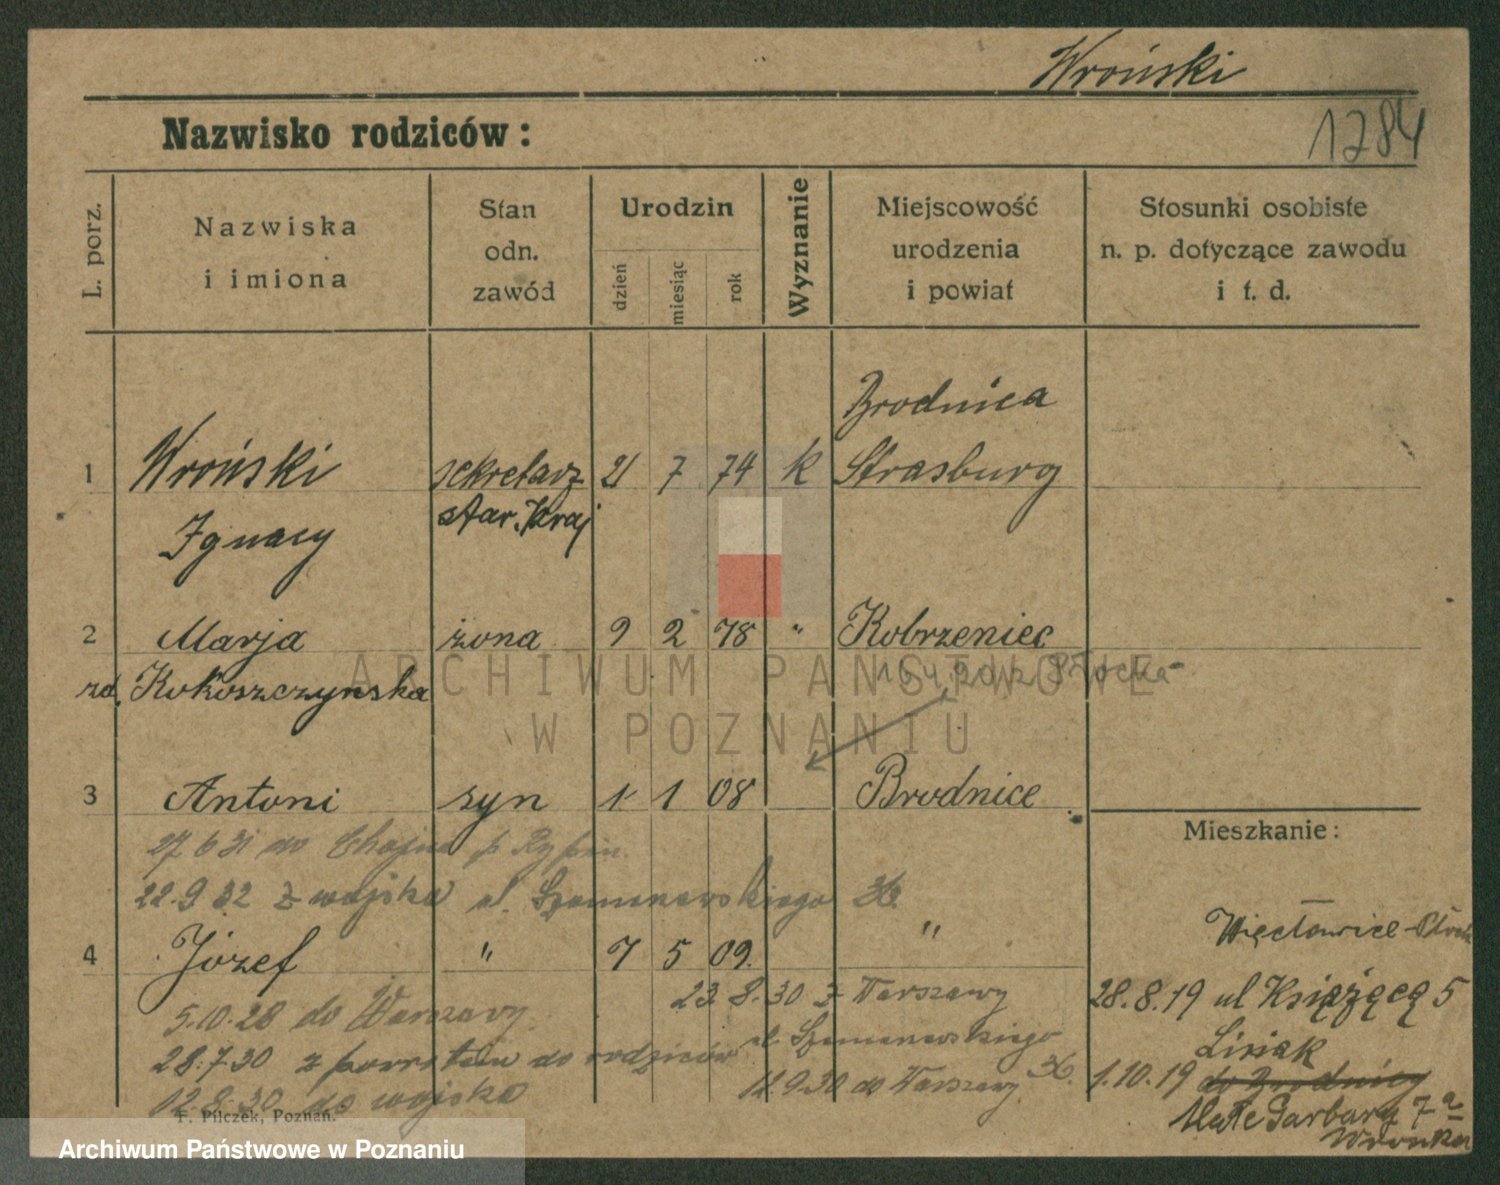 Wroński
Nazwisko rodziców:
1284
L. porz.
Nazwiska i imiona
Stan odn. zawód
Urodzin
dzień
miesiąc
rok
Wyznanie
Miejscowość urodzenia i powiat
Stosunki osobiste n. p. dotyczące zawodu i t. d.
Brodnica
1 Wroński sekretarz 21 7 74 k Strasburg
Ignacy star. Kraj
2 Marja żona 9 2 78 " Kobrzeniec
zd. Kokoszczynska
ARCHIWUM PAŃSTWOWE
W POZNANIU
3 Antoni syn 1 1 08 Brodnice
Mieszkanie:
27 6 31 do p.
22.9 32 z wojska ul. Szamarzewskiego 36.
Więcławice
4 Józef " 7 5 09. "
5.10.28 do Warszawy
23.8.30 z Warszawy
28.8.19 ul Książęcą 5
Lisiak
28.7.30 z powrotem do rodziców ul. Szamarzewskiego 36.
12.8.30 do wojska
12.9.30 do Warszawy
1.10.19 do Brodnicy
Małe Garbary 7a
F. Pilczek, Poznań.
Archiwum Państwowe w Poznaniu